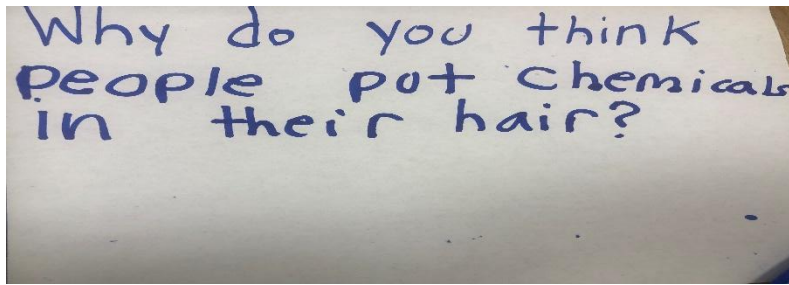 Why do you think
people put chemicals
in their hair?